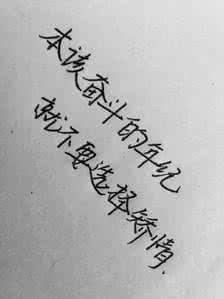 本该奋斗的年纪
就不要选择矫情.